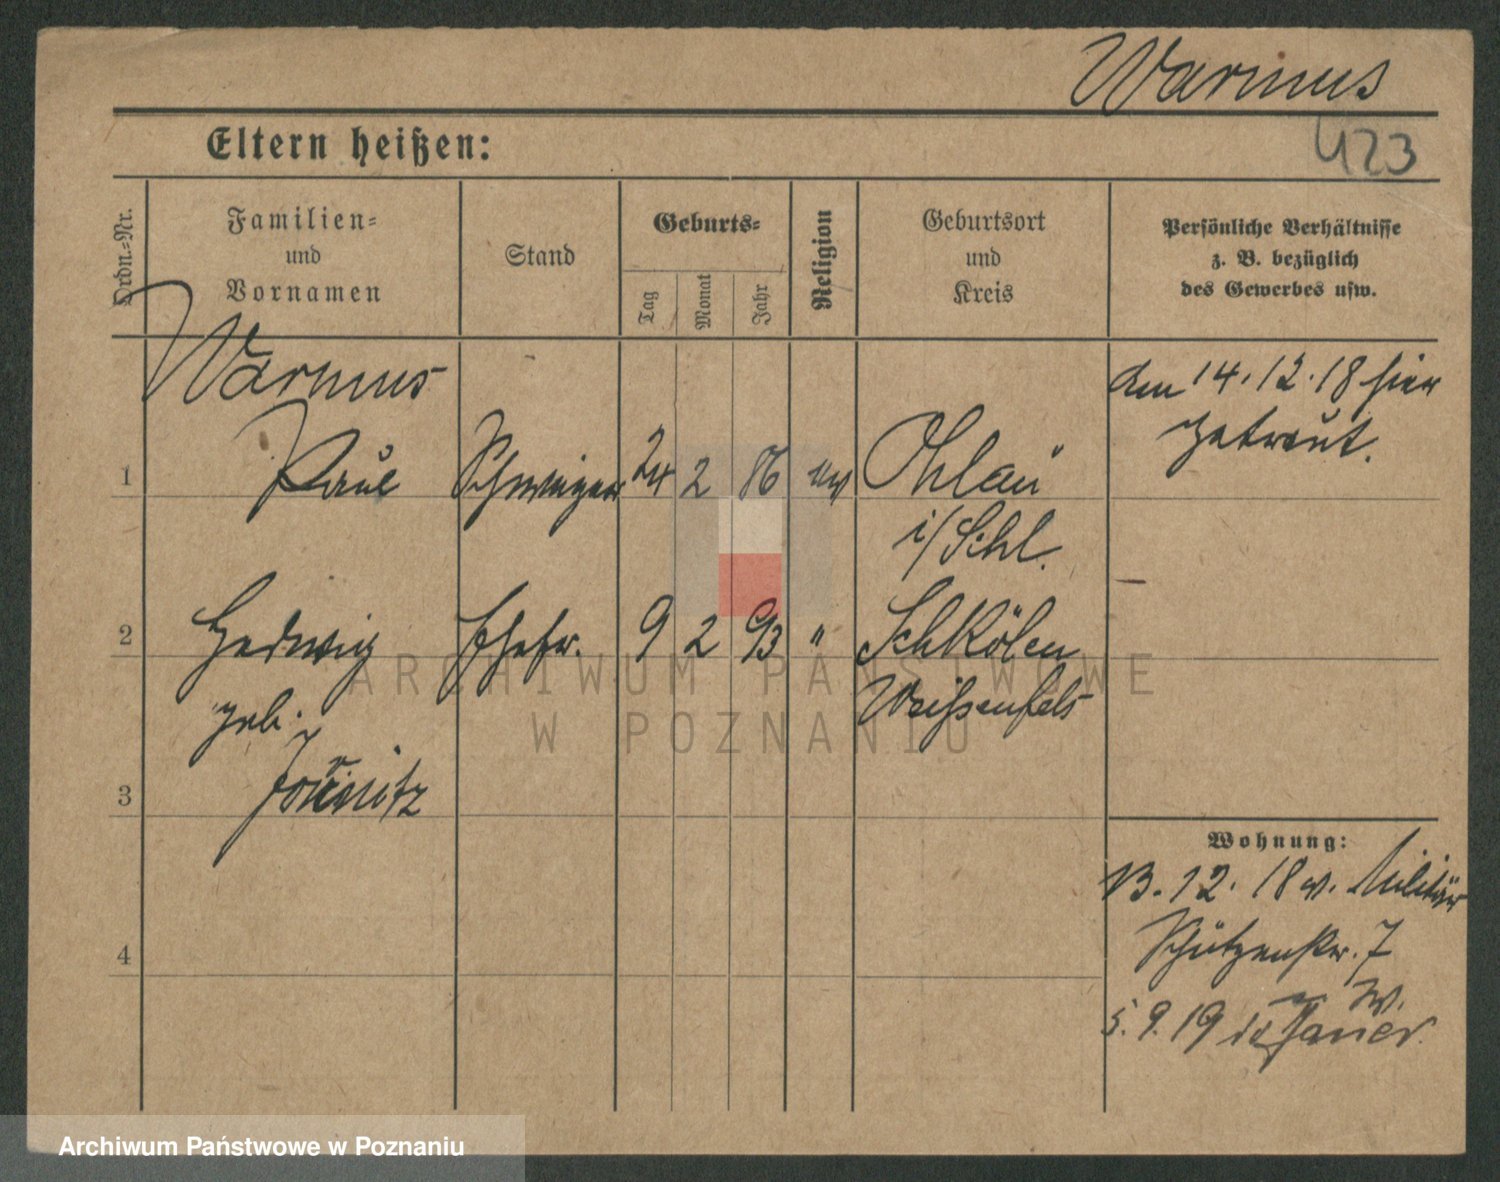 Warmus
Eltern heißen:
423
Ordn.=Nr.
Familien=
und
Vornamen
Stand
Geburts=
Tag
Monat
Jahr
Religion
Geburtsort
und
Kreis
Persönliche Verhältnisse
z. B. bezüglich
des Gewerbes usw.
Warmus
am 14.12.18 hier
getraut.
1 Paul 24 2 86 ev Ohlau
i/Schl.
2 Hedwig Ehefr. 9 2 93 " Schkölen
Weißenfels
geb.
3
Wohnung:
13.12.18 v. Militär
Schützenstr. 7
4
5.9.19
ARCHIWUM PAŃSTWOWE
W POZNANIU
Archiwum Państwowe w Poznaniu